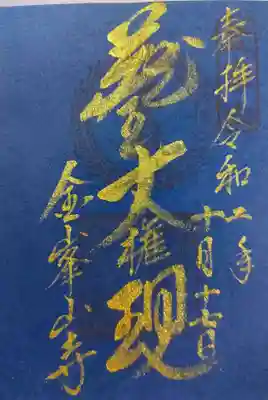 奉拝 令和二年十月十七日
蔵王大権現
金峯山寺